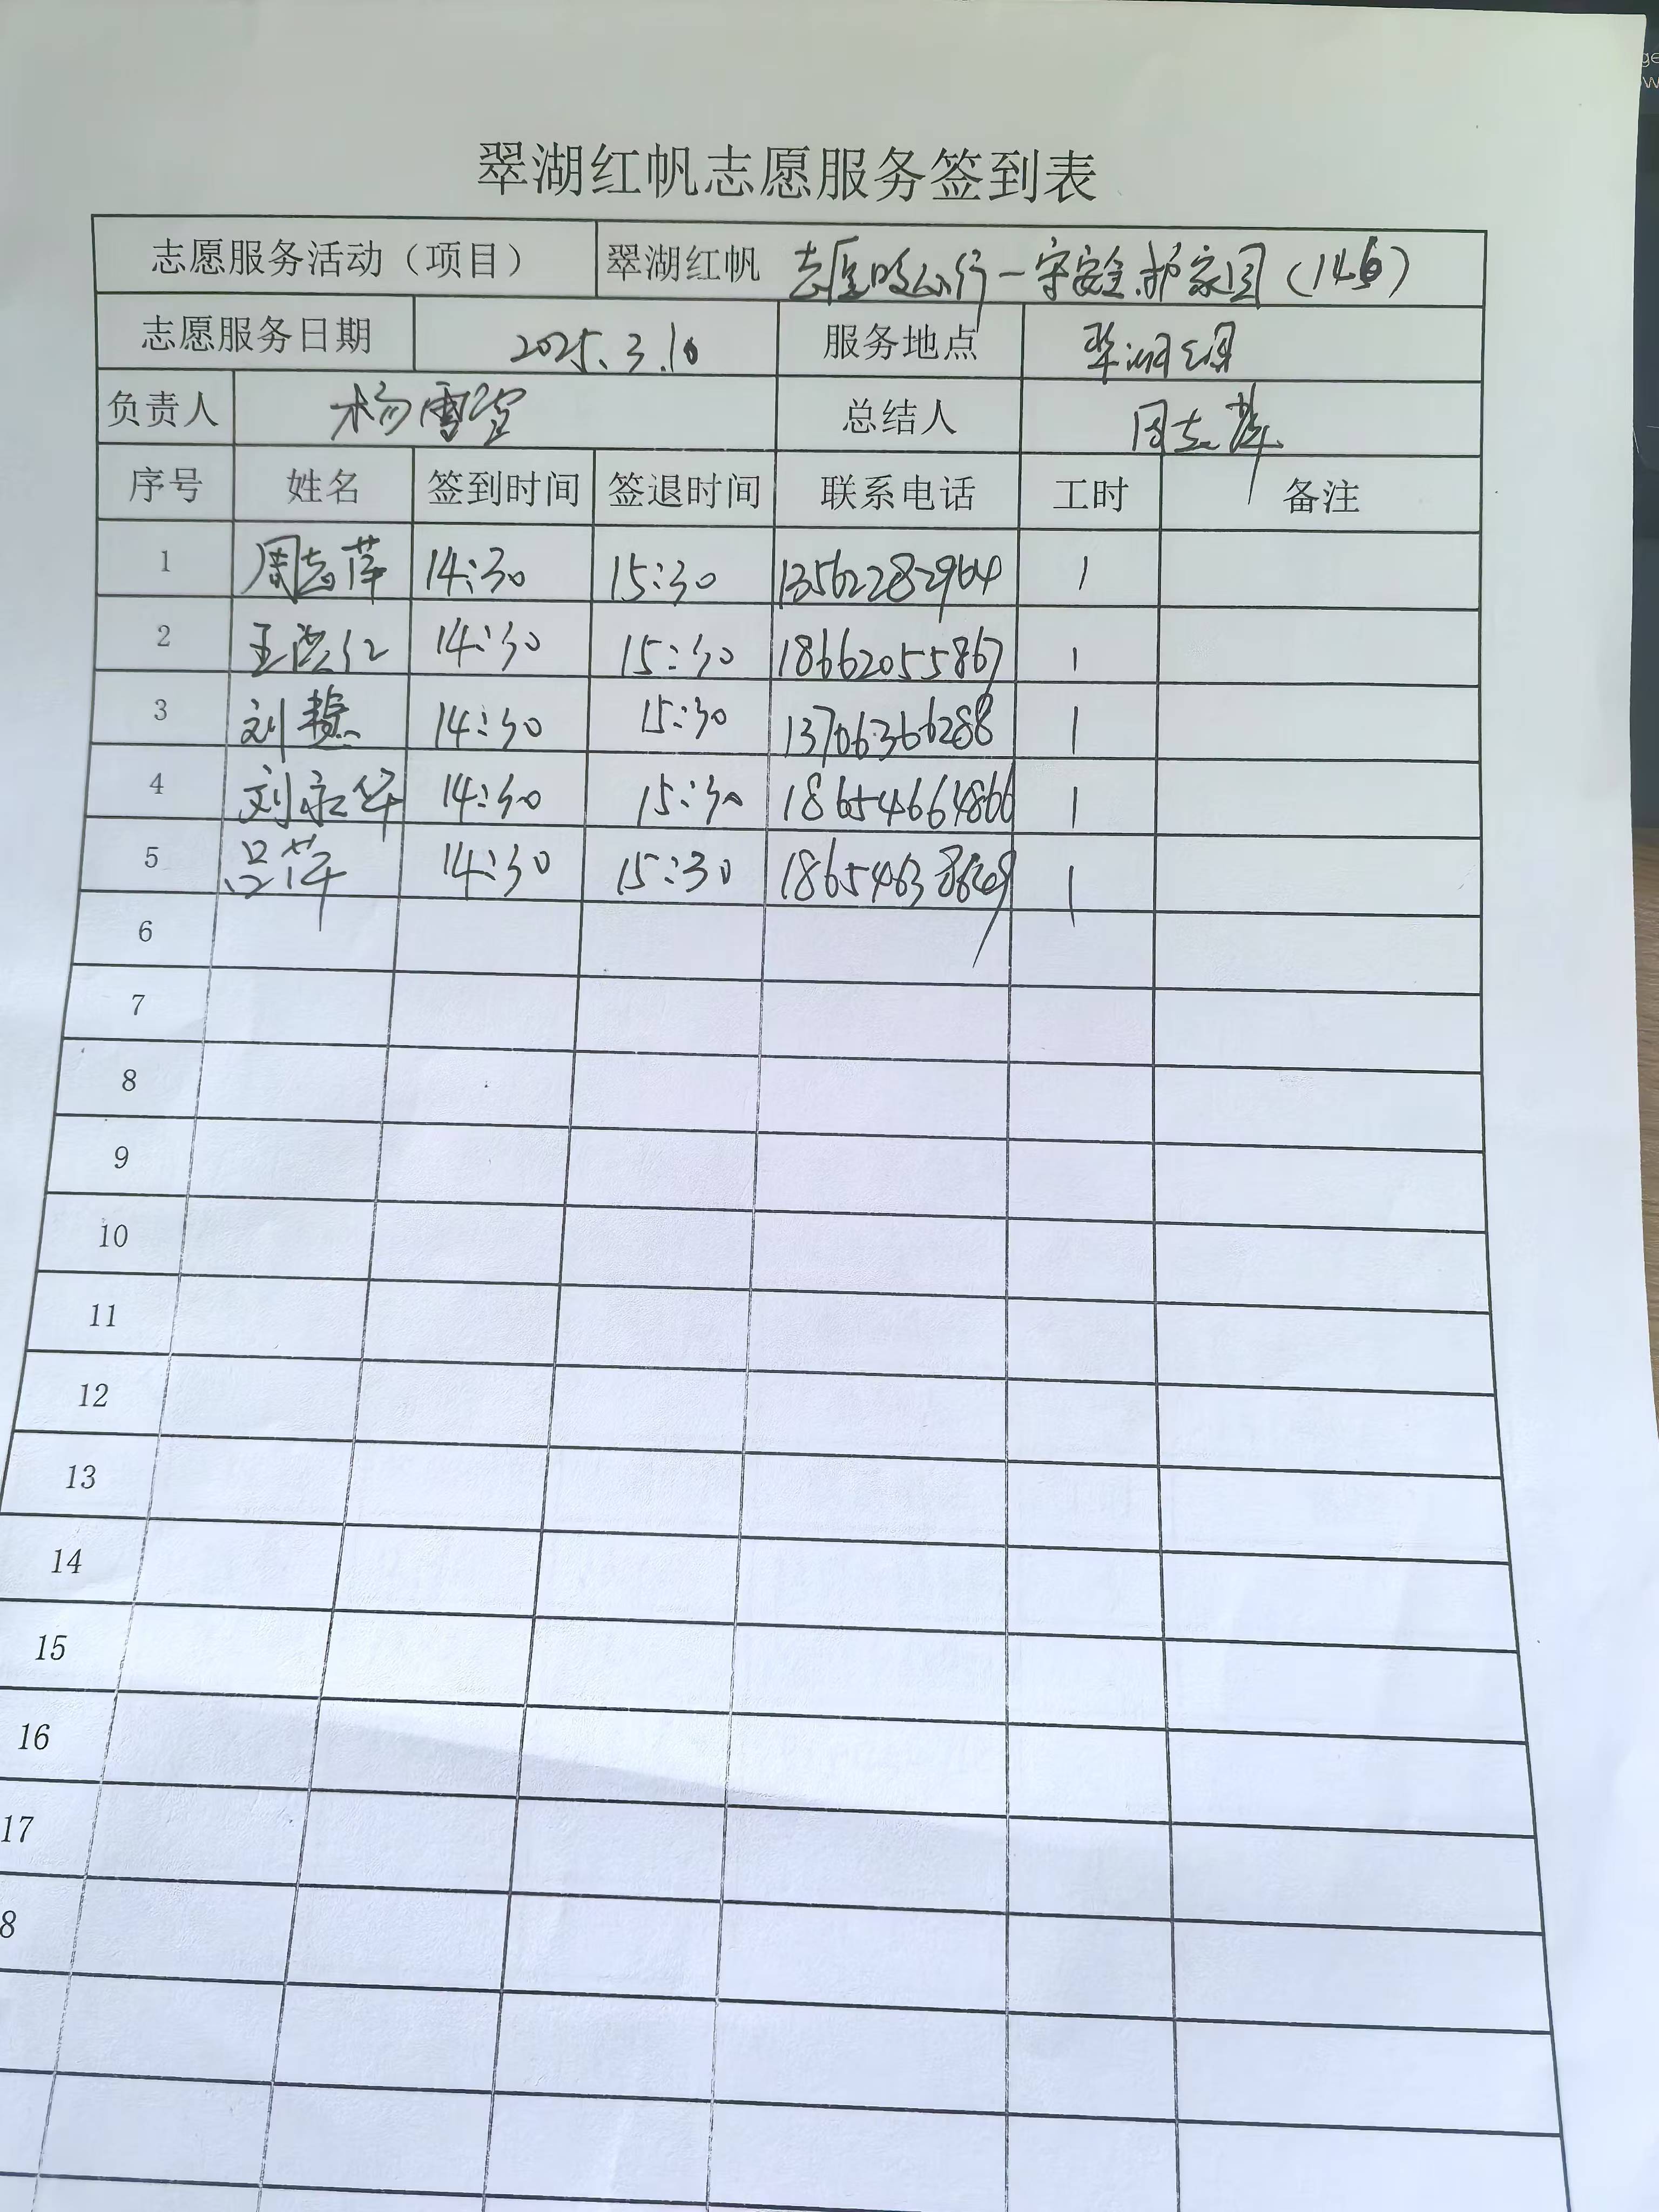 翠湖红帆志愿服务签到表
志愿服务活动（项目） 翠湖红帆 志愿 行一守安全护家园
志愿服务日期 2025.3.10 服务地点 翠湖
负责人 杨雪莹 总结人 周志萍
序号 姓名 签到时间 签退时间 联系电话 工时 备注
1 周志萍 14:30 15:30 13562282964 1
2 王 红 14:30 15:30 18662055867 1
3 刘慧 14:30 15:30 13706366288 1
4 刘永华 14:30 15:30 18654664866 1
5 吕萍 14:30 15:30 1
6
7
8
9
10
11
12
13
14
15
16
17
8